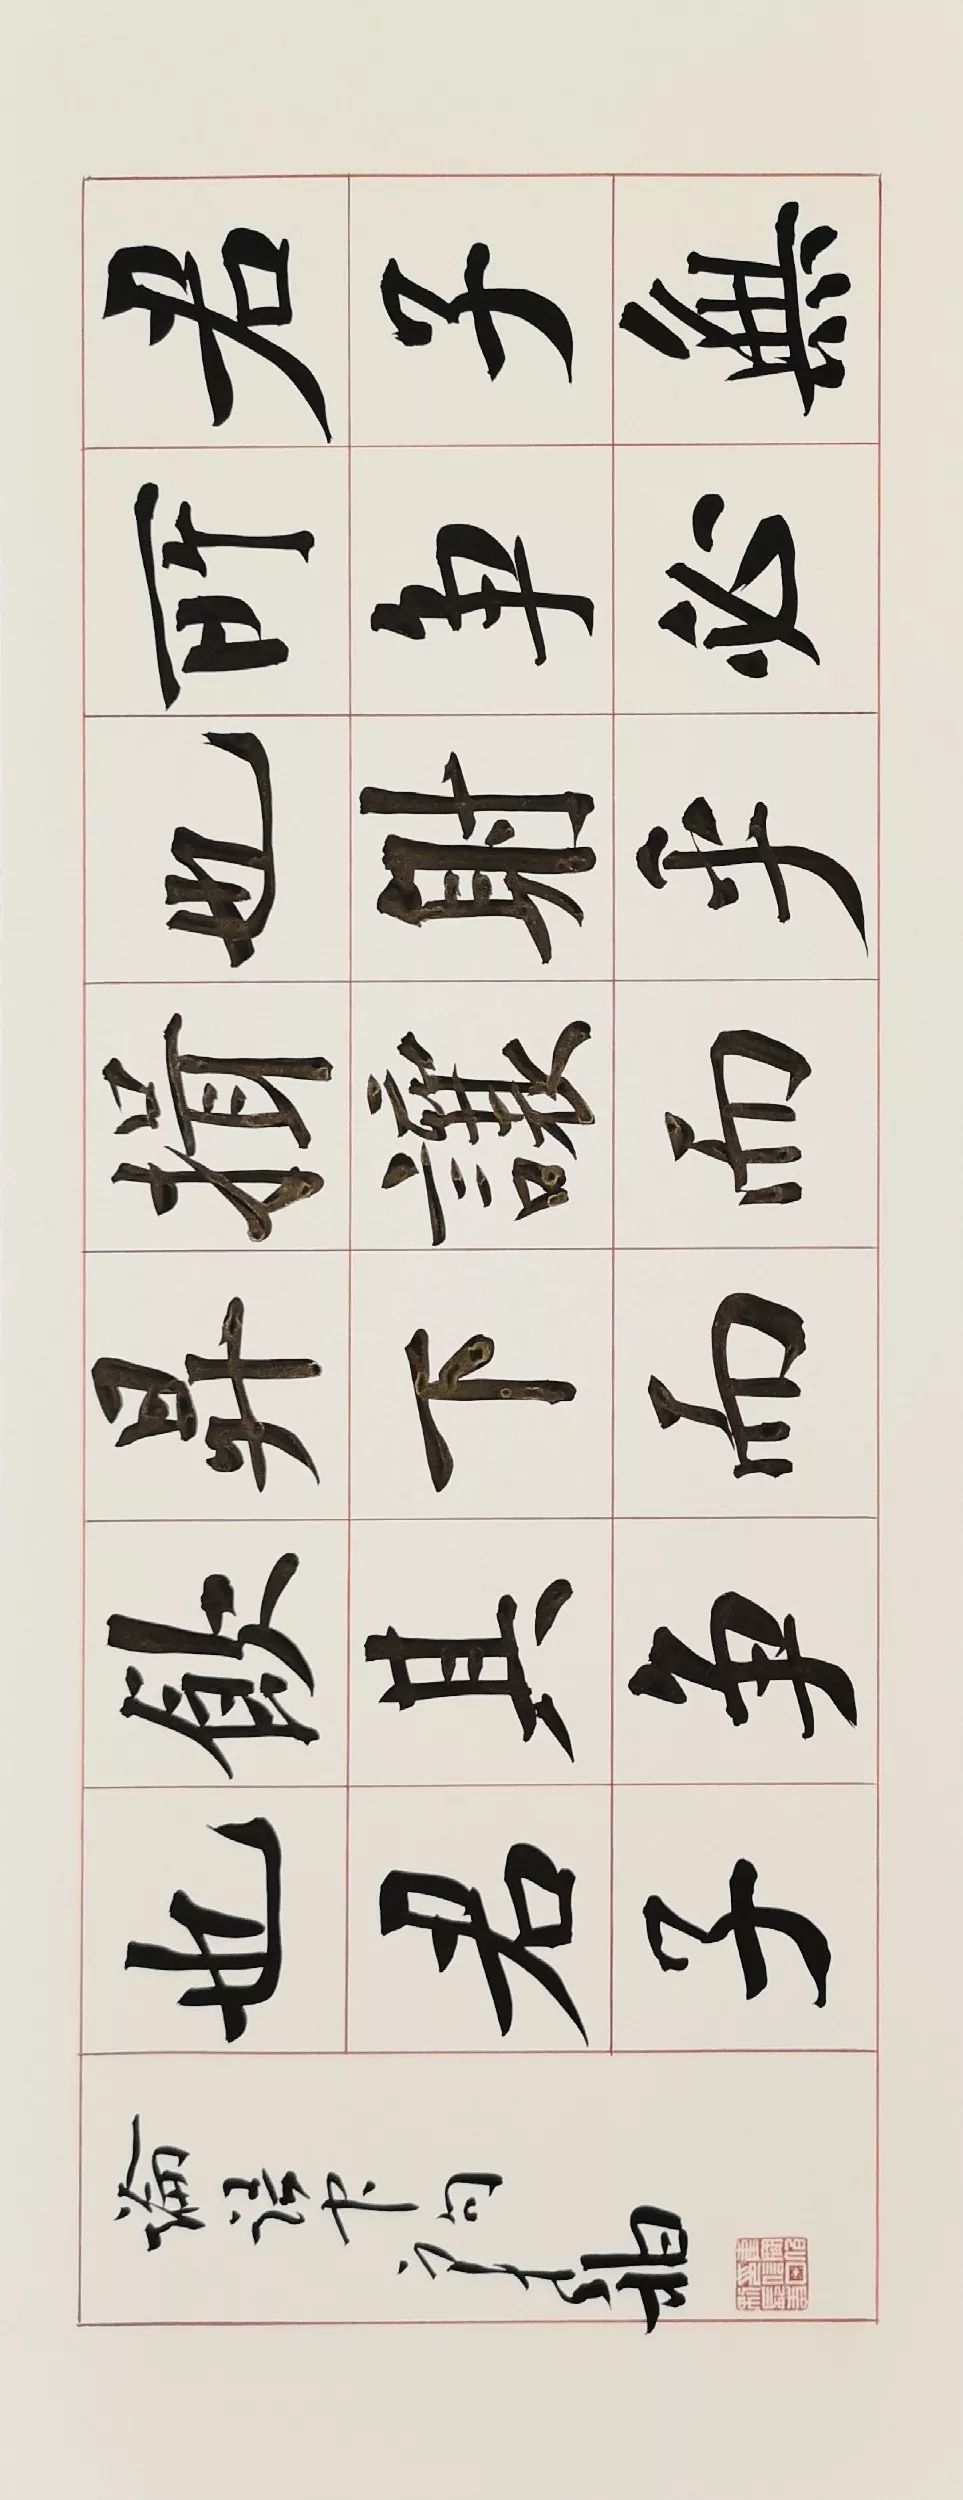 君子無
所爭必
也射乎
揖讓而
升下而
飲其爭
也君子
論語句